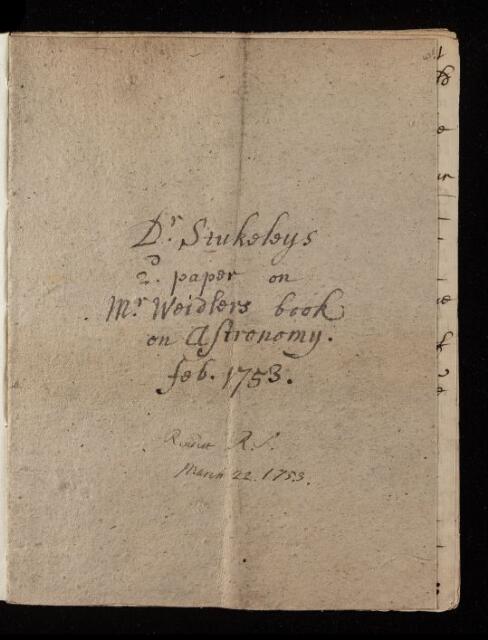 Dr Stukeleys
2d. paper on
Mr Weidlers book
on Astronomy.
feb. 1753.
R. S.
March 22. 1753.